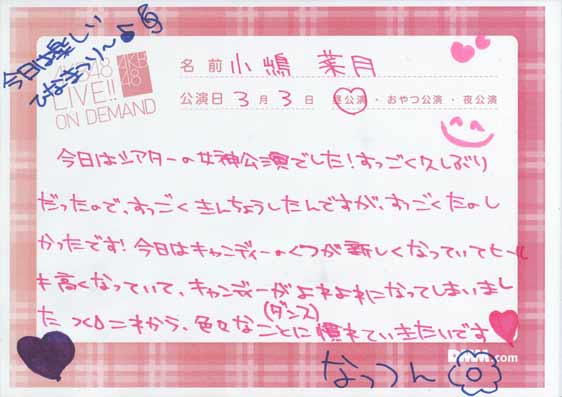 今日は楽しい
ひなまつり〜♪
AKB48
LIVE!!
ON DEMAND
AKB
48
名前 小嶋 菜月
公演日 3月3日 昼公演・おやつ公演・夜公演
今日はシアターの女神公演でした!すっごく久しぶり
だったので、すっごくきんちょうしたんですが、すっごくたのし
かったです!今日はキャンディーのくつが新しくなっていてヒール
も高くなっていて、キャンディーがよれよれになってしまいまし
た これから、色々な(ダンス)ことに慣れていきたいです
DMM.com
なっつん